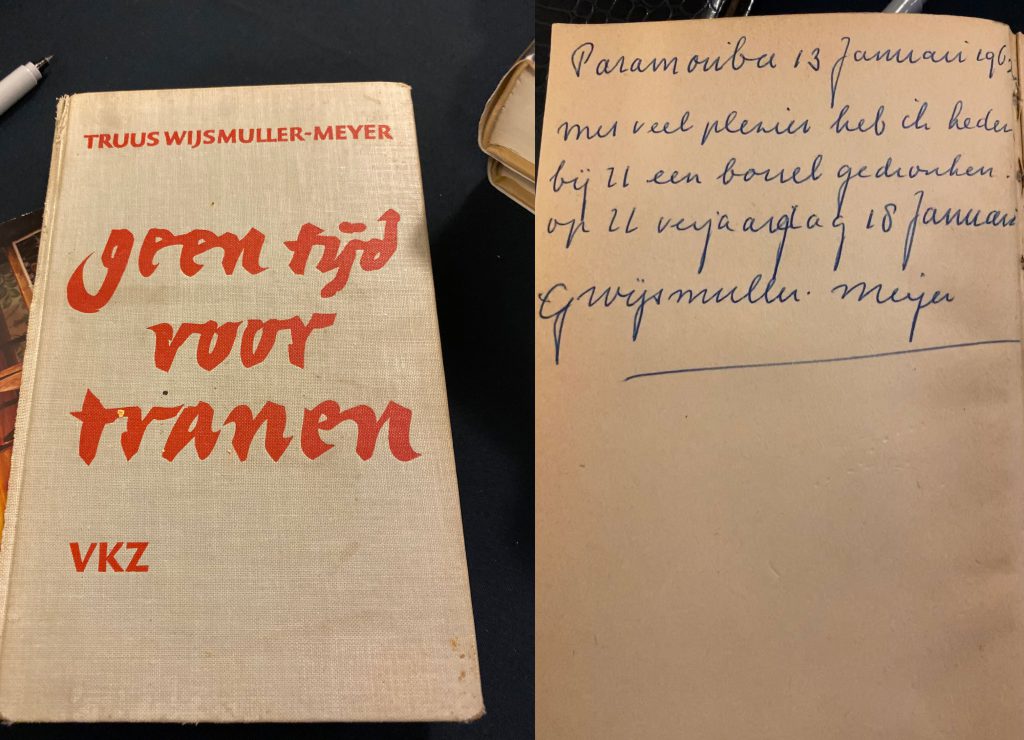 TRUUS WIJSMULLER-MEYER
geen tijd
voor
tranen
VKZ
Paramaribo 13 Januari 196
met veel plezier heb ik heden
bij U een borrel gedronken.
op U verjaardag 18 Januari
G Wijsmuller. Meijer